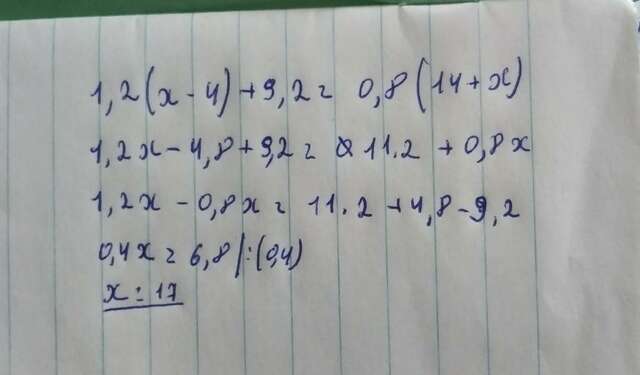 1,2(x-4)+9,2= 0,8(14+x)
1,2x-4,8+9,2= 11.2 +0,8x
1,2x-0,8x= 11.2 +4,8-9,2
0,4x=6,8/:(0,4)
x=17